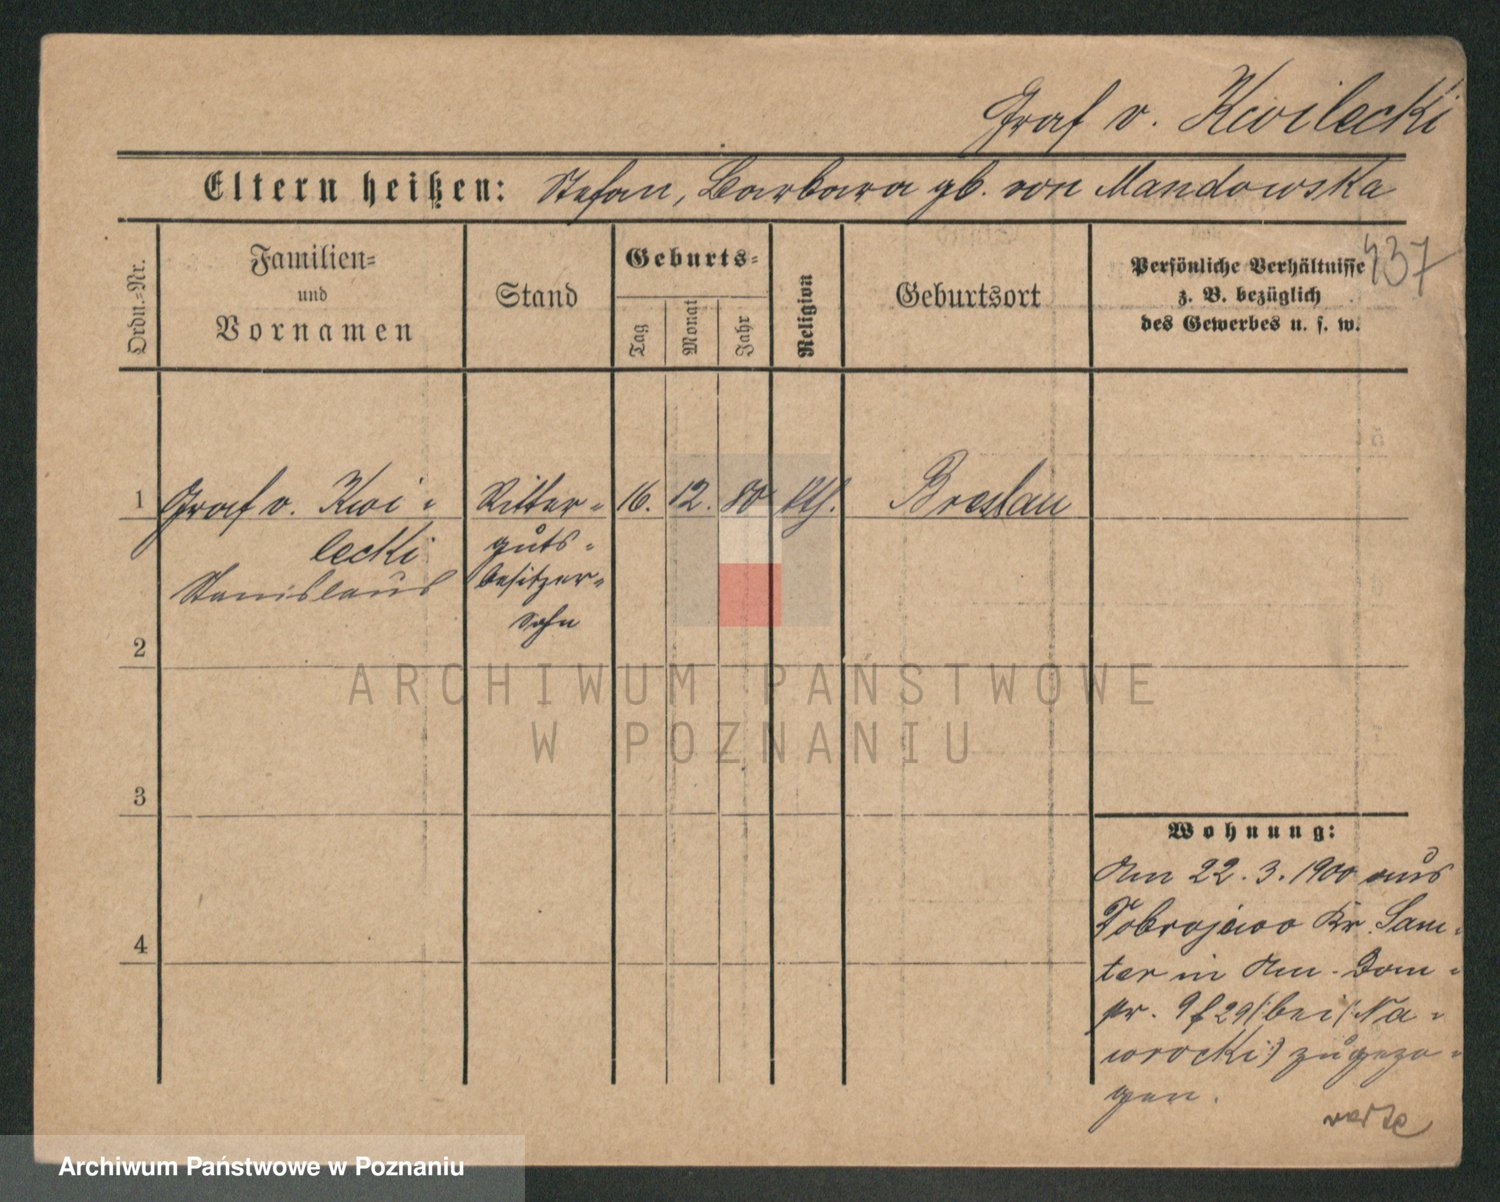 Graf v. Kwilecki
Eltern heißen: Stefan, Barbara gb. von Mandowska
437
Ordn.-Nr.
Familien-
und
Vornamen
Stand
Geburts-
Tag
Monat
Jahr
Religion
Geburtsort
Persönliche Verhältnisse
z. B. bezüglich
des Gewerbes u. s. w.
1 Graf v. Kwi- Ritter- 16. 12. 80 kth. Breslau
lecki guts-
Stanislaus besitzer-
sohn
2
ARCHIWUM PAŃSTWOWE
W POZNANIU
3
Wohnung:
Am 22. 3. 1900 aus
Dobrojewo Kr. Sam-
4
ter in Am. Dom-
pr. 29 (: bei Na-
wrocki :) zugezo-
gen.
verte
Archiwum Państwowe w Poznaniu